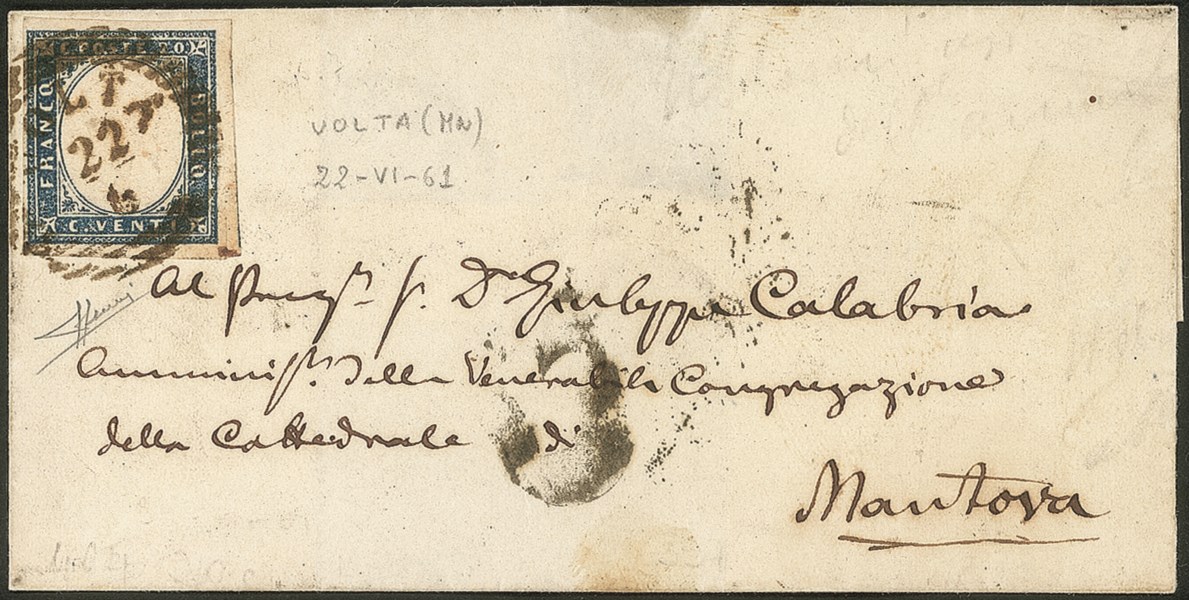 C. POSTE 20
FRANCO
BOLLO
C. VENTI
LTA
22
VOLTA (MN)
22-VI-61
Al Preg.r S. Dr Giuseppe Calabria
Amminis.r della Venerabile Congregazione
della Cattedrale di
Mantova
3